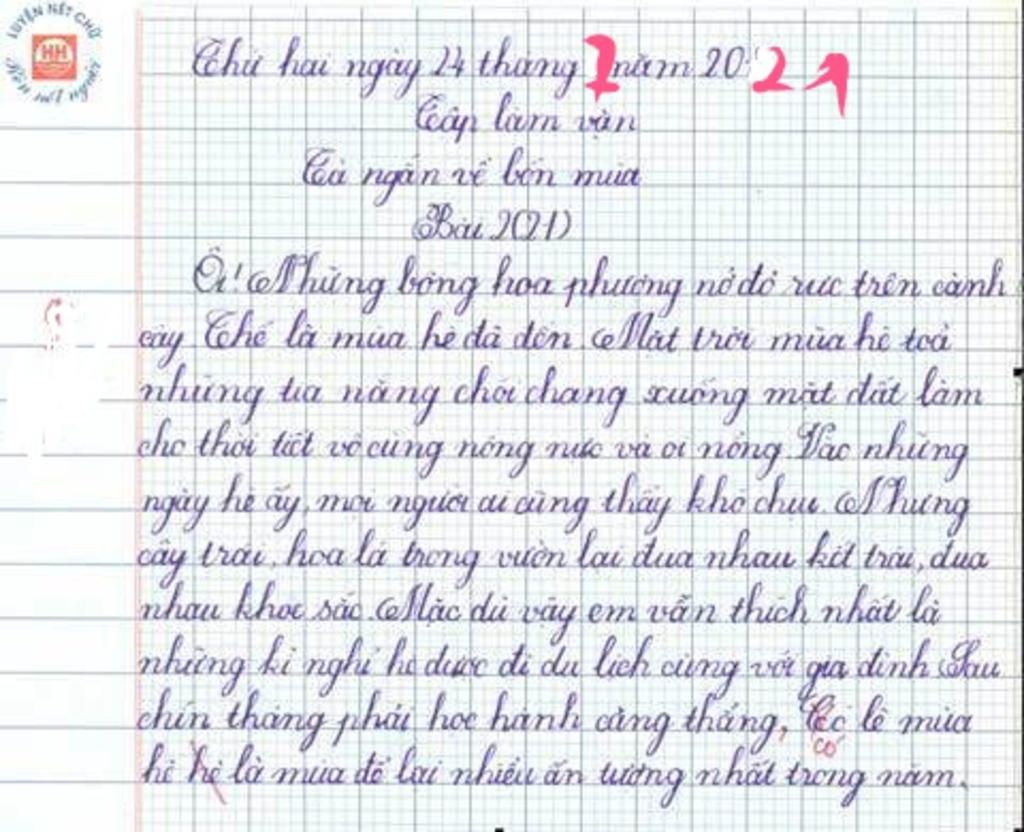 LUYỆN NÉT CHỮ
HH
Rèn nết người
Thứ hai ngày 24 tháng 1 năm 2021
Tập làm văn
Tả ngắn về bốn mùa
Bài 2(21)
Ôi! Những bông hoa phượng nở đỏ rực trên cành
cây Thế là mùa hè đã đến. Mặt trời mùa hè toả
những tia nắng chói chang xuống mặt đất làm
cho thời tiết vô cùng nóng nực và oi nóng. Vào những
ngày hè ấy, mọi người ai cũng thấy khó chịu. Nhưng
cây trái, hoa lá trong vườn lại đua nhau kết trái, đua
nhau khoe sắc. Mặc dù vậy em vẫn thích nhất là
những kì nghỉ hè được đi du lịch cùng với gia đình Sau
chín tháng phải học hành căng thẳng, Có lẽ mùa
có
hè hè là mùa để lại nhiều ấn tượng nhất trong năm.